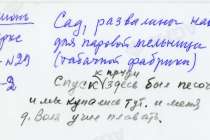 Сад, развалины
для паровой мельницы
№ 29 (табачной фабрики)
к пруду
2 Спуск (здесь был песо
и мы купались тут. и меня
д. Воля учил плавать.